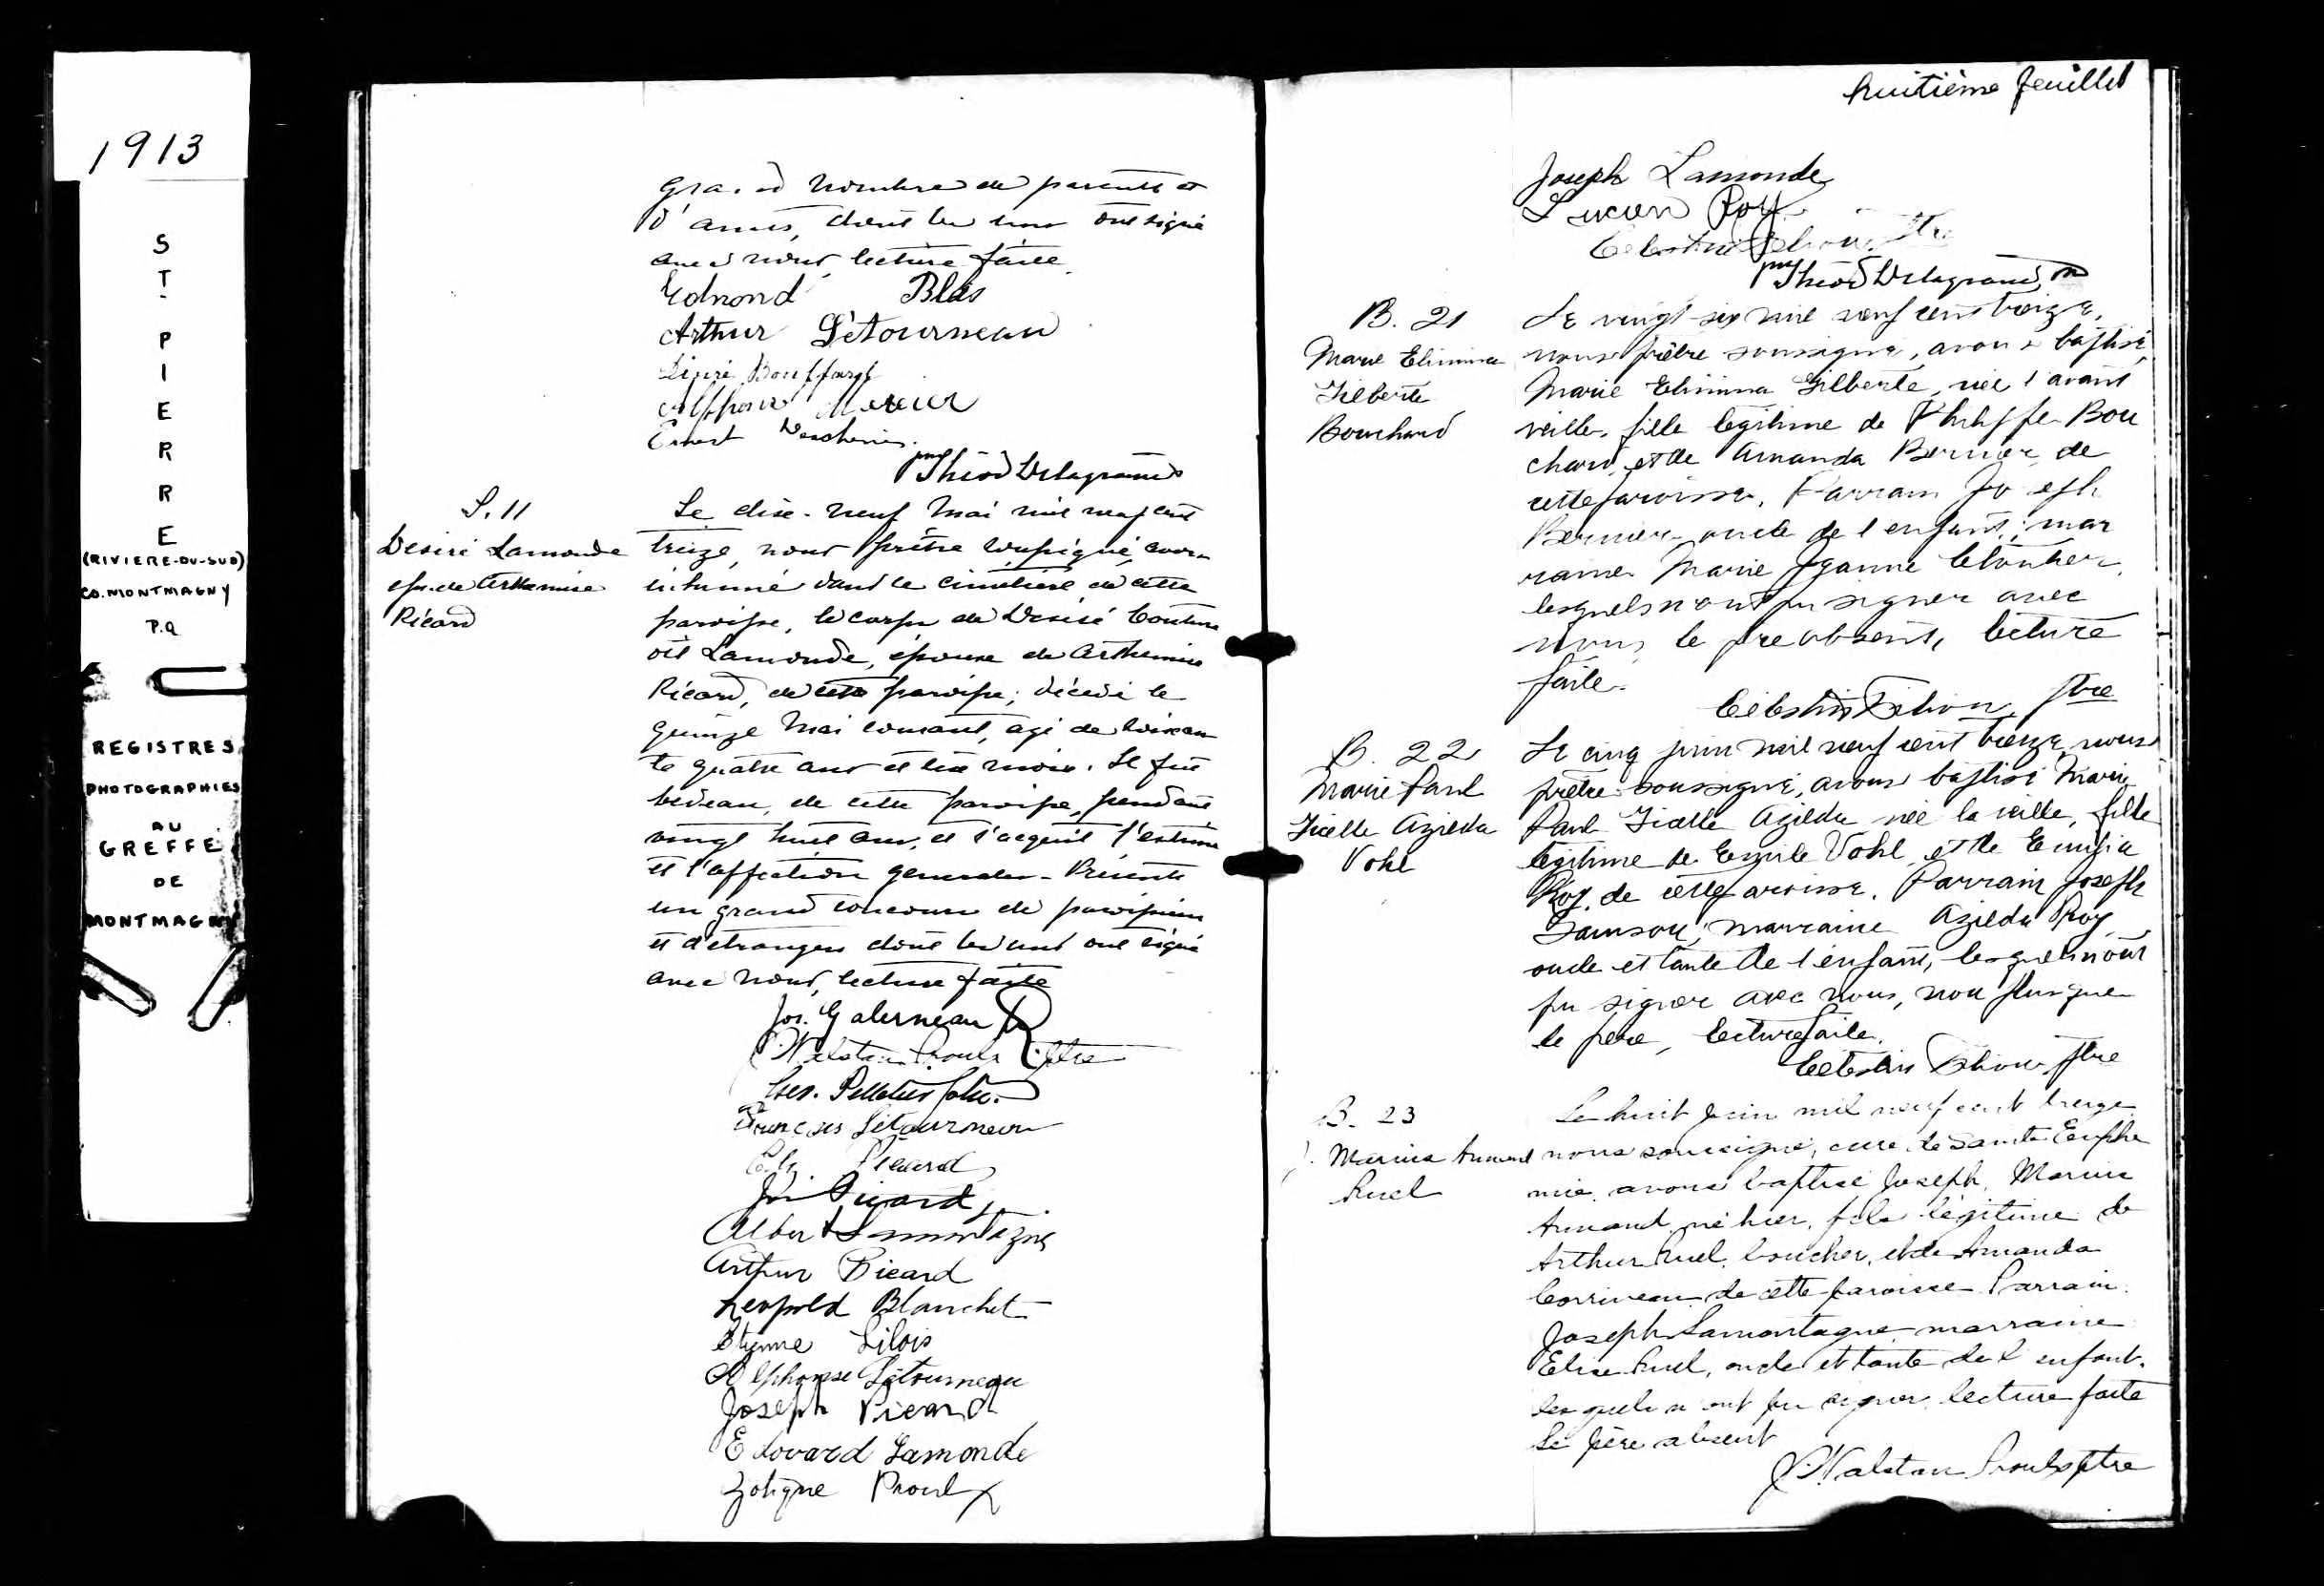 1913
ST-PIERRE
(RIVIERE-DU-SUD)
CO. MONTMAGNY
P.Q
REGISTRES
PHOTOGRAPHIES
AU
GREFFE
DE
MONTMAGNY
grand nombre de parents et
d'amis, dont les uns ont signé
avec nous, lecture faite
Edmond Blais
Arthur Létourneau
Désiré Bouffard
Alphonse Mercier
Ernest
ptre Théod Delagrave
S. 11
Desiré Lamonde
epx. de Arthemise
Picard
Le dix-neuf Mai mil neuf cent
treize, nous prêtre soussigné, avons
inhumé dans le cimetière de cette
paroisse, le corps de Desiré Couture
dit Lamonde, epoux de Arthemise
Picard, de cette paroisse; décédé le
quinze Mai courant, agé de soixan
te quatre ans et six mois. Il fut
bedeau, de cette paroisse, pendant
vingt huit ans, et s'acquit l'estime
et l'affection generales. Présents
un grand concours de paroissiens
et d'étrangers dont les uns ont signé
avec nous, lecture faite
Jos. Galerneau
Walstan Proulx Ptre
Pelletier
François Létourneau
Picard
Jos Picard
Albert Lamontagne
Arthur Picard
Leopold Blanchet
Etienne Lilois
Alphonse Létourneau
Joseph Picard
Edouard Lamonde
Zotique Proulx
huitième feuillet
Joseph Lamonde
Lucien Roy
Celestin ptre
ptre Théod Delagrave
B. 21
Marie Elimina
Gilberte
Bouchard
Le vingt-six mil neuf cent treize,
nous prêtre soussigné, avons baptisé
Marie Elimina Gilberte, née l'avant
veille, fille légitime de Philippe Bou
chard, et de Amanda Bernier de
cette paroisse. Parrain Joseph
Bernier oncle de l'enfant; mar
raine Marie Jeanne
lesquels n'ont pu signer avec
nous, le père absent, lecture
faite.
Célestin ptre
B. 22
Marie Paul
Gisèlle Azilda
Vohl
Le cinq juin mil neuf cent treize, nous
prêtre soussigné, avons baptisé Marie
Paul Giselle Azilda née la veille, fille
légitime de Emile Vohl, et de
Roy, de cette paroisse. Parrain Joseph
Samson; marraine Azilda Roy
oncle et tante de l'enfant, lesquels n'ont
pu signer avec nous, non plus que
le père, lecture faite.
Celestin ptre
B. 23
J. Marius Armand
Ruel
Le huit juin mil neuf cent treize
nous soussigné, curé de Sainte Euphé
mie, avons baptisé Joseph, Marius
Armand né hier, fils légitime de
Arthur Ruel, boucher, et de Amanda
Corriveau de cette paroisse. Parrain
Joseph Lamontagne, marraine
Elise Ruel, oncle et tante de l'enfant.
lesquels n'ont pu signer, lecture faite
Le père absent
Walstan Proulx ptre